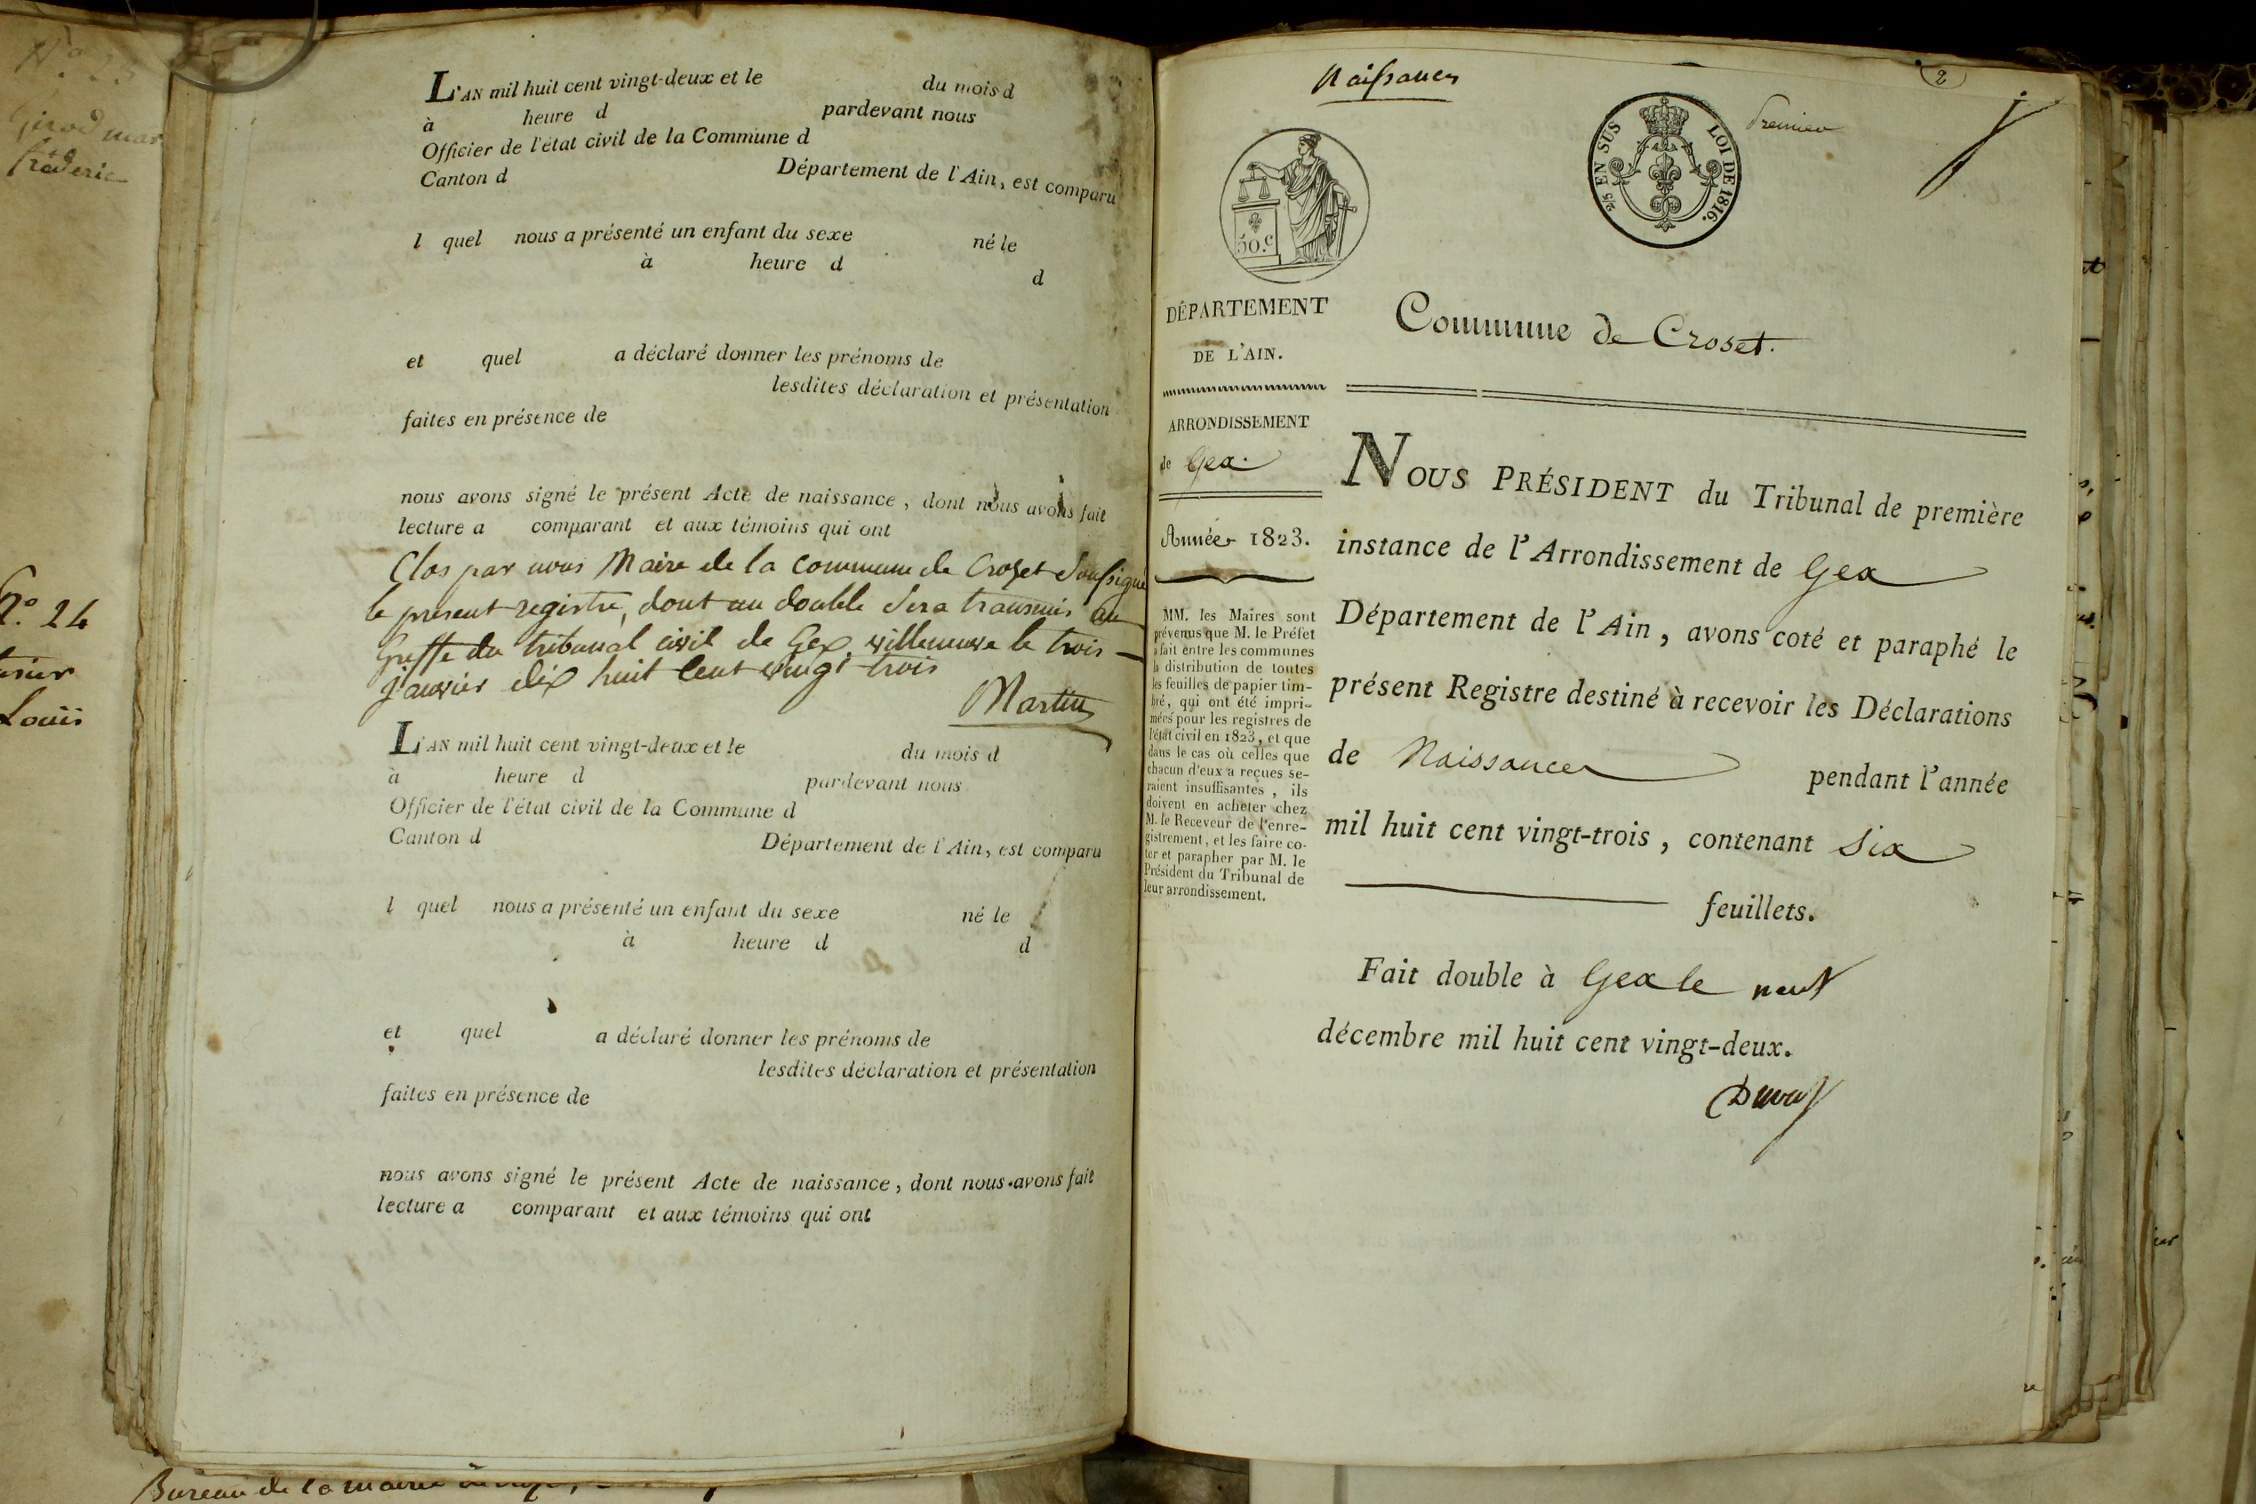 N.º 23
Girod marc
fréderic
N.º 24
Louis
L'AN mil huit cent vingt-deux et le du mois d
à heure d pardevant nous
Officier de l'état civil de la Commune d
Canton d Département de l'Ain, est comparu
l quel nous a présenté un enfant du sexe né le
à heure d d
et quel a déclaré donner les prénoms de
lesdites déclaration et présentation
faites en présence de
nous avons signé le présent Acte de naissance, dont nous avons fait
lecture a comparant et aux témoins qui ont
Clos par nous Maire de la commune de Crozet soussigné
le présent registre, dont un double sera transmis au
Greffe du tribunal civil de Gex, villeneuve le trois
janvier dix huit cent vingt trois
Martin
L'AN mil huit cent vingt-deux et le du mois d
à heure d pardevant nous
Officier de l'état civil de la Commune d
Canton d Département de l'Ain, est comparu
l quel nous a présenté un enfant du sexe né le
à heure d d
et quel a déclaré donner les prénoms de
lesdites déclaration et présentation
faites en présence de
nous avons signé le présent Acte de naissance, dont nous avons fait
lecture a comparant et aux témoins qui ont
Bureau de la mairie
Naissances
2
Premier
50.c
2/5 EN SUS LOI DE 1816.
DÉPARTEMENT
DE L'AIN.
ARRONDISSEMENT
de Gex.
Année 1823.
MM. les Maires sont
prévenus que M. le Préfet
a fait entre les communes
la distribution de toutes
les feuilles de papier tim-
bré, qui ont été impri-
mées pour les registres de
l'état civil en 1823, et que
dans le cas où celles que
chacun d'eux a reçues se-
raient insuffisantes, ils
doivent en acheter chez
M. le Receveur de l'enre-
gistrement, et les faire co-
ter et parapher par M. le
Président du Tribunal de
leur arrondissement.
Commune de Croset.
NOUS PRÉSIDENT du Tribunal de première
instance de l'Arrondissement de Gex
Département de l'Ain, avons coté et paraphé le
présent Registre destiné à recevoir les Déclarations
de Naissances pendant l'année
mil huit cent vingt-trois, contenant six
feuillets.
Fait double à Gex le neuf
décembre mil huit cent vingt-deux.